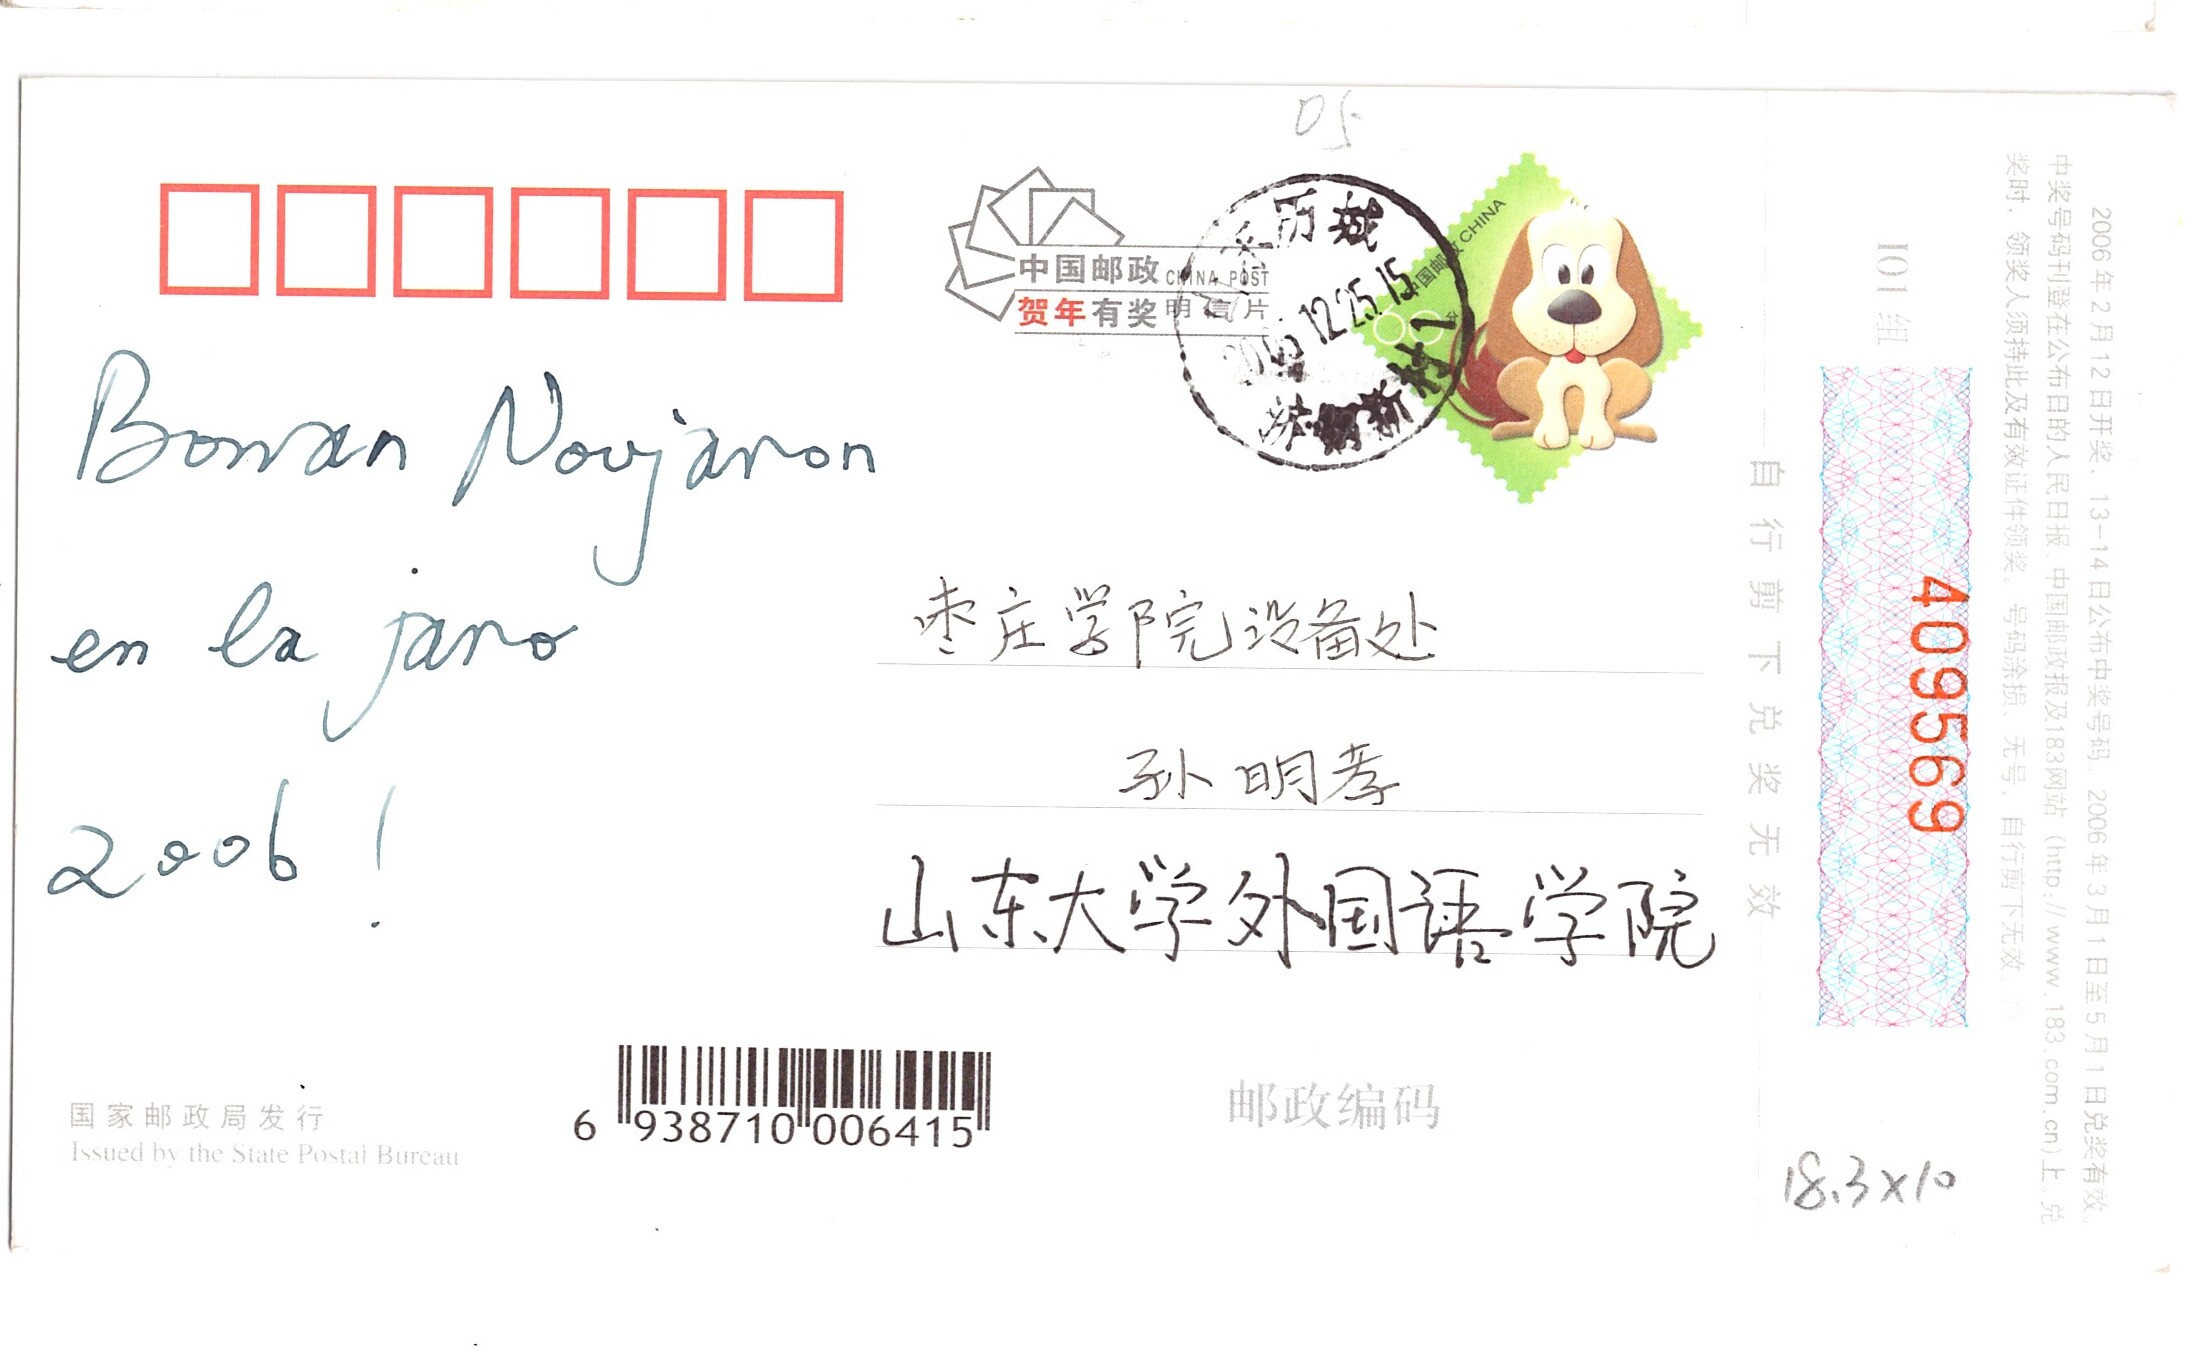 05
中国邮政 CHINA POST
贺年有奖明信片
历城
2005.12.25.15
新村1
中国邮政 CHINA
80分
Bonan Novjaron
en la jaro
2006!
枣庄学院设备处
孙明孝
山东大学外国语学院
国家邮政局发行
Issued by the State Postal Bureau
6 938710 006415
邮政编码
自行剪下兑奖无效
101组
409569
18.3×10
2006年2月12日开奖，13-14日公布中奖号码，2006年3月1日至5月1日兑奖有效。
中奖号码刊登在公布日的人民日报、中国邮政报及183网站（http://www.183.com.cn)上。兑
奖时，领奖人须持此及有效证件领奖。号码涂损、无号、自行剪下无效。